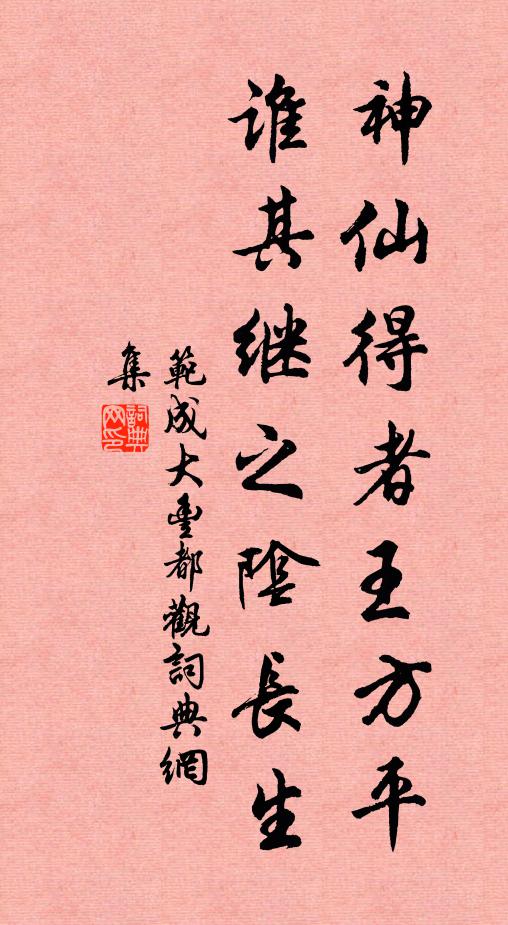 神仙得者王方平
谁其继之陰長生
範成大豊都觀詞典網
集
詞典
网印